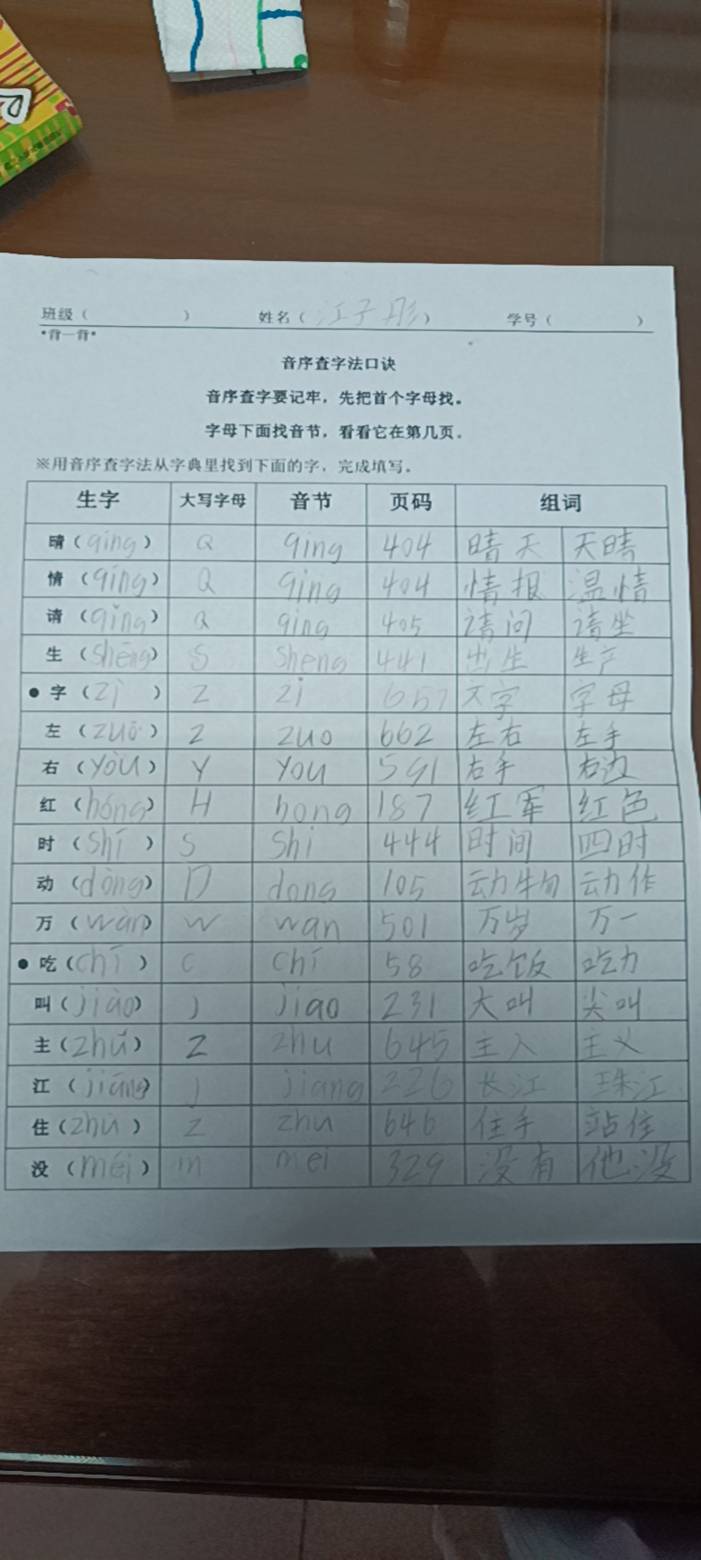 班级（ ） 姓名（江子彤） 学号（ ）
*背一背*
音序查字法口诀
音序查字要记牢，先把首个字母找。
字母下面找音节，看看它在第几页。
※用音序查字法从字典里找到下面的字，完成填写。
生字 大写字母 音节 页码 组词
晴（qíng） Q qing 404 晴天 天晴
情（qíng） Q qing 404 情报 温情
请（qǐng） Q qing 405 请问 请坐
生（shēng） S sheng 441 出生 生产
●字（zì） Z zi 657 文字 字母
左（zuǒ） Z zuo 662 左右 左手
右（yòu） Y you 591 右手 右边
红（hóng） H hong 187 红军 红色
时（shí） S shi 444 时间 四时
动（dòng） D dong 105 动物 动作
万（wàn） W wan 501 万岁 万一
●吃（chī） C chi 58 吃饭 吃力
叫（jiào） J jiao 231 大叫 尖叫
主（zhǔ） Z zhu 645 主人 主义
江（jiāng） J jiang 226 长江 珠江
住（zhù） Z zhu 646 住手 站住
没（méi） m mei 329 没有 他没